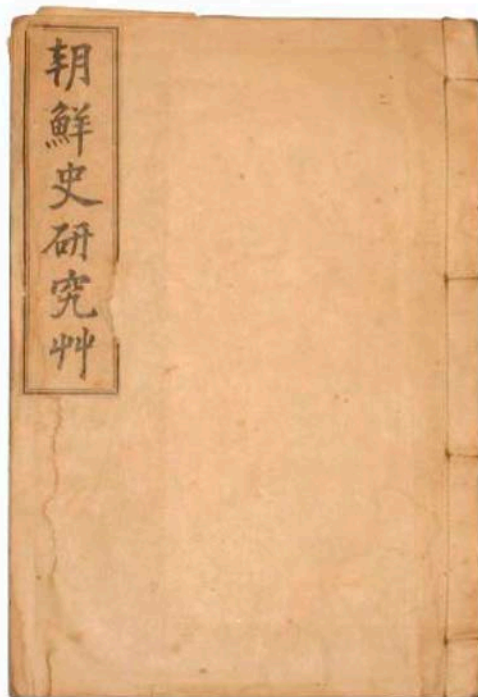 朝鮮史研究艸